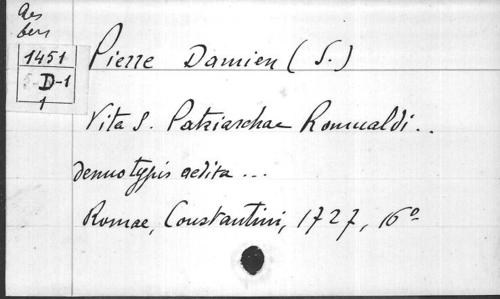 Res
bers
1451
5-D-1
1
Pierre Damien (S.)
Vita S. Patriarchae Romualdi..
denuo typis aedita ...
Romae, Constantini, 1727, 16º